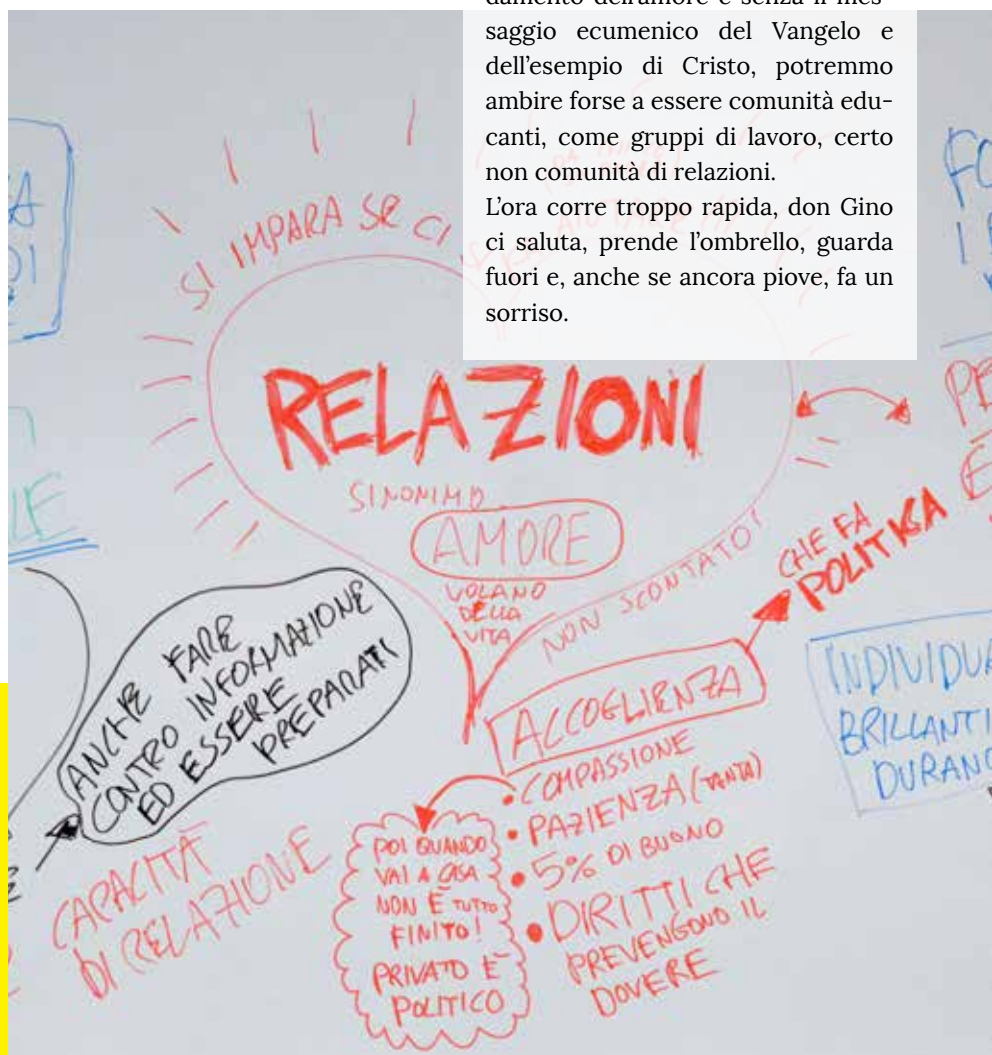 damento dell'amore e senza il mes-
saggio ecumenico del Vangelo e
dell'esempio di Cristo, potremmo
ambire forse a essere comunità edu-
canti, come gruppi di lavoro, certo
non comunità di relazioni.
L'ora corre troppo rapida, don Gino
ci saluta, prende l'ombrello, guarda
fuori e, anche se ancora piove, fa un
sorriso.
SI IMPARA SE CI
RELAZIONI
SINONIMO
AMORE
VOLANO
DELLA
VITA
NON SCONTATO!
CHE FA
POLITICA
ACCOGLIENZA
• COMPASSIONE
• PAZIENZA (TANTA)
• 5% DI BUONO
• DIRITTI CHE
PREVENGONO IL
DOVERE
POI QUANDO
VAI A CASA
NON È TUTTO
FINITO!
PRIVATO È
POLITICO
ANCHE FARE
CONTRO INFORMAZIONE
ED ESSERE
PREPARATI
CAPACITÀ
DI RELAZIONE
BRILLANTI